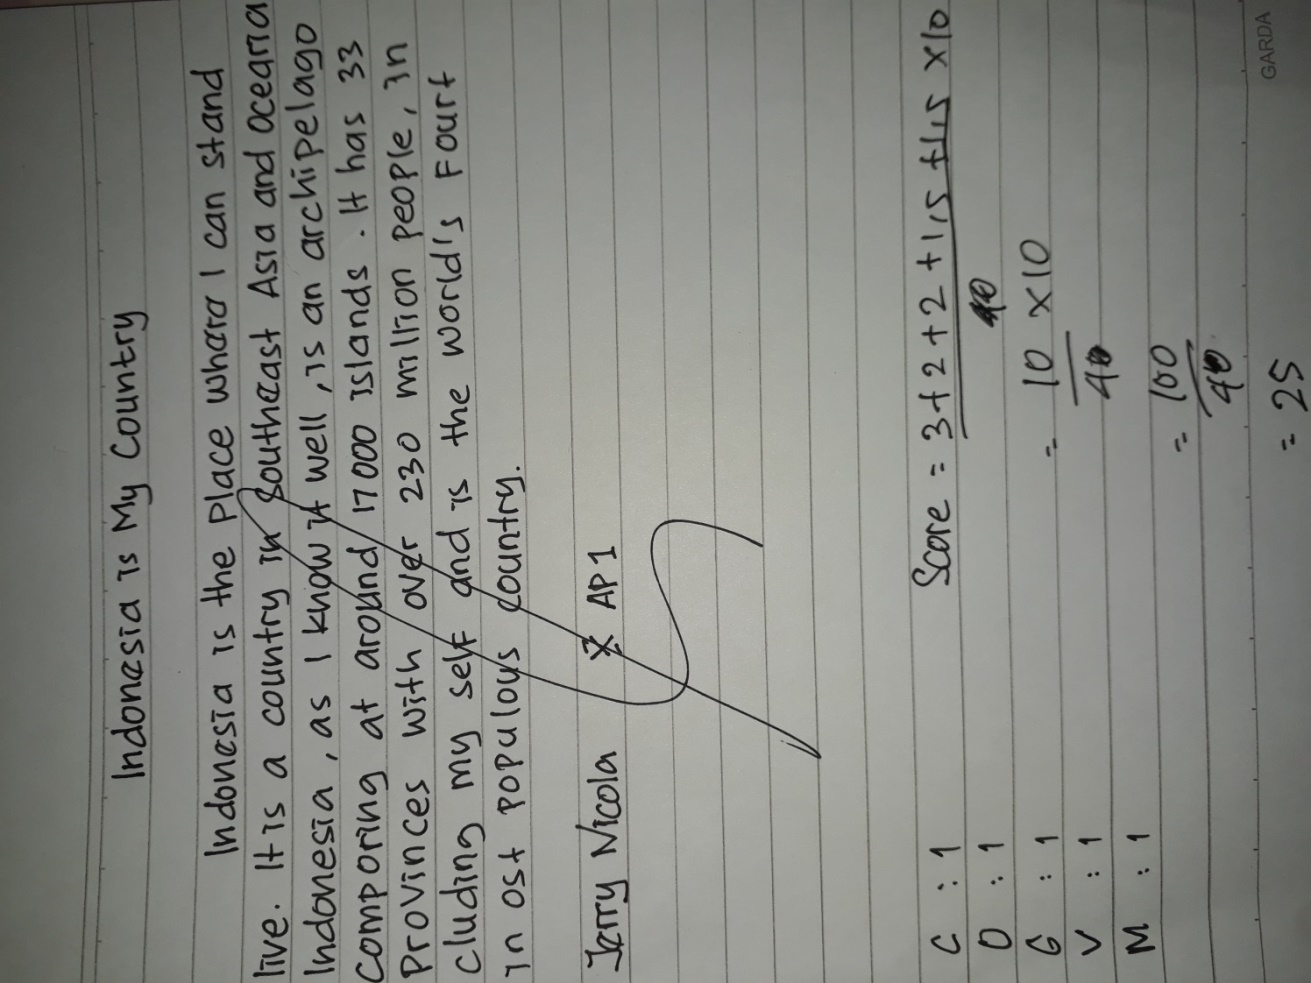 Indonesia is My Country
Indonesia is the Place where I can stand
live. It is a country in Southeast Asia and oceania
Indonesia, as I know it well, is an archipelago
Comporing at around 17000 islands. It has 33
Provinces with over 230 million people, in
cluding my self and is the world's Fourt
in ost populous country.
Jerry Nicola X AP1
C : 1
O : 1
G : 1
V : 1
M : 1
Score = 3+2+2+1,5+1,5 x10
40
= 10 x10
40
= 100
40
= 25
GARDA